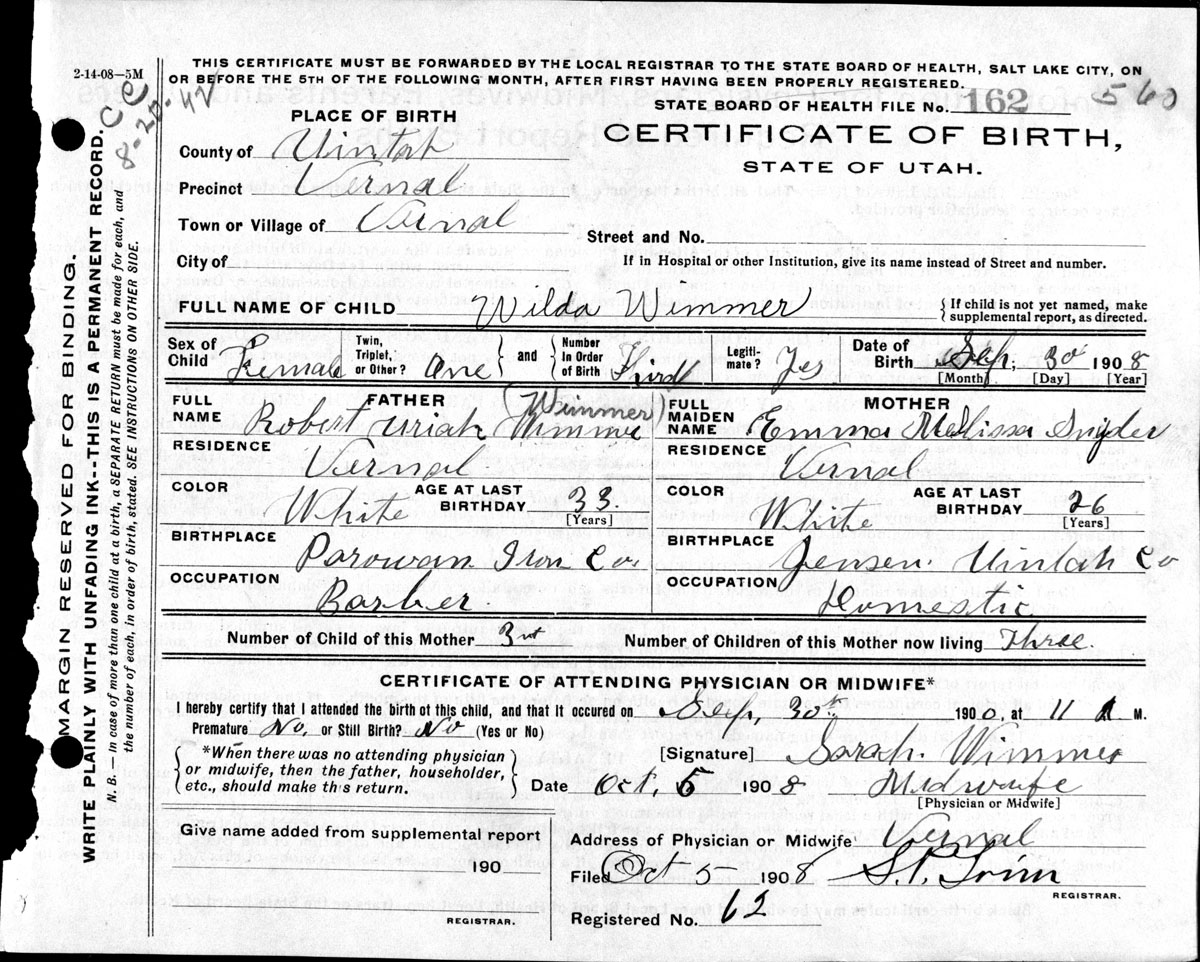 2-14-08—5M
THIS CERTIFICATE MUST BE FORWARDED BY THE LOCAL REGISTRAR TO THE STATE BOARD OF HEALTH, SALT LAKE CITY, ON
OR BEFORE THE 5TH OF THE FOLLOWING MONTH, AFTER FIRST HAVING BEEN PROPERLY REGISTERED.
CC
8-20-42
STATE BOARD OF HEALTH FILE No. 162 560
PLACE OF BIRTH
CERTIFICATE OF BIRTH,
STATE OF UTAH.
County of Uintah
Precinct Vernal
Town or Village of Vernal
Street and No.
City of
If in Hospital or other Institution, give its name instead of Street and number.
FULL NAME OF CHILD Wilda Wimmer { If child is not yet named, make
supplemental report, as directed.
Sex of Child Female Twin, Triplet, or Other? One } and { Number In Order of Birth Third Legitimate? Yes Date of Birth Sep, 30 1908
[Month] [Day] [Year]
FATHER
FULL NAME Robert Uriah Wimmer (Wimmer)
MOTHER
FULL MAIDEN NAME Emma Melissa Snyder
RESIDENCE Vernal
RESIDENCE Vernal
COLOR White AGE AT LAST BIRTHDAY 33 [Years]
COLOR White AGE AT LAST BIRTHDAY 26 [Years]
BIRTHPLACE Parowan Iron Co.
BIRTHPLACE Jensen Uintah Co
OCCUPATION Barber
OCCUPATION Domestic
Number of Child of this Mother 3rd Number of Children of this Mother now living Three.
CERTIFICATE OF ATTENDING PHYSICIAN OR MIDWIFE*
I hereby certify that I attended the birth of this child, and that it occured on Sep, 30th 1900, at 11 A M.
Premature No, or Still Birth? No (Yes or No)
*When there was no attending physician
or midwife, then the father, householder,
etc., should make this return.
[Signature] Sarah Wimmer
Date Oct, 5 1908 Midwife
[Physician or Midwife]
Give name added from supplemental report
190
REGISTRAR.
Address of Physician or Midwife Vernal
Filed Oct 5 1908
REGISTRAR.
Registered No. 62
MARGIN RESERVED FOR BINDING.
WRITE PLAINLY WITH UNFADING INK--THIS IS A PERMANENT RECORD.
N. B. — In case of more than one child at a birth, a SEPARATE RETURN must be made for each, and
the number of each, in order of birth, stated. SEE INSTRUCTIONS ON OTHER SIDE.